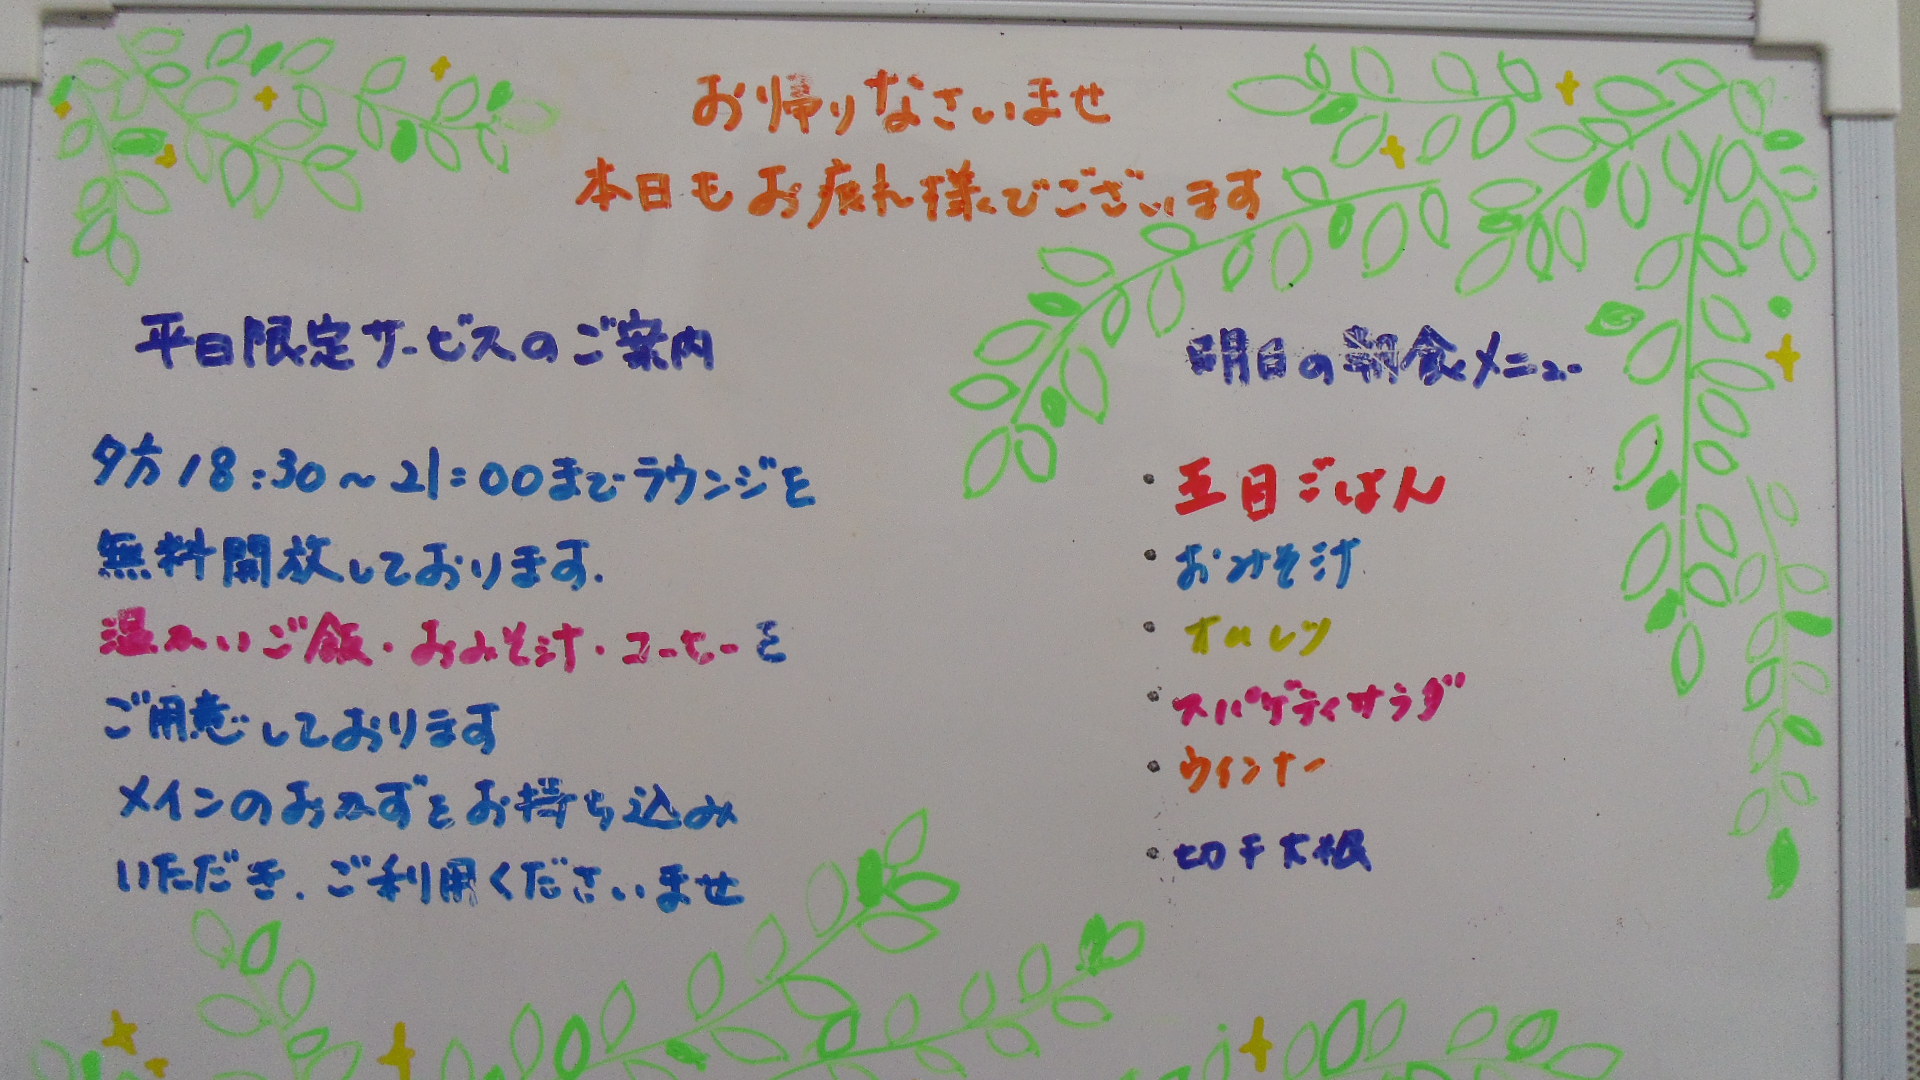 お帰りなさいませ
本日もお疲れ様でございます
平日限定サービスのご案内
夕方18:30～21:00までラウンジを
無料開放しております.
温かいご飯・おみそ汁・コーヒーを
ご用意しております
メインのおかずをお持ち込み
いただき、ご利用くださいませ
明日の朝食メニュー
・五目ごはん
・おみそ汁
・オムレツ
・スパゲティサラダ
・ウインナー
・切干大根